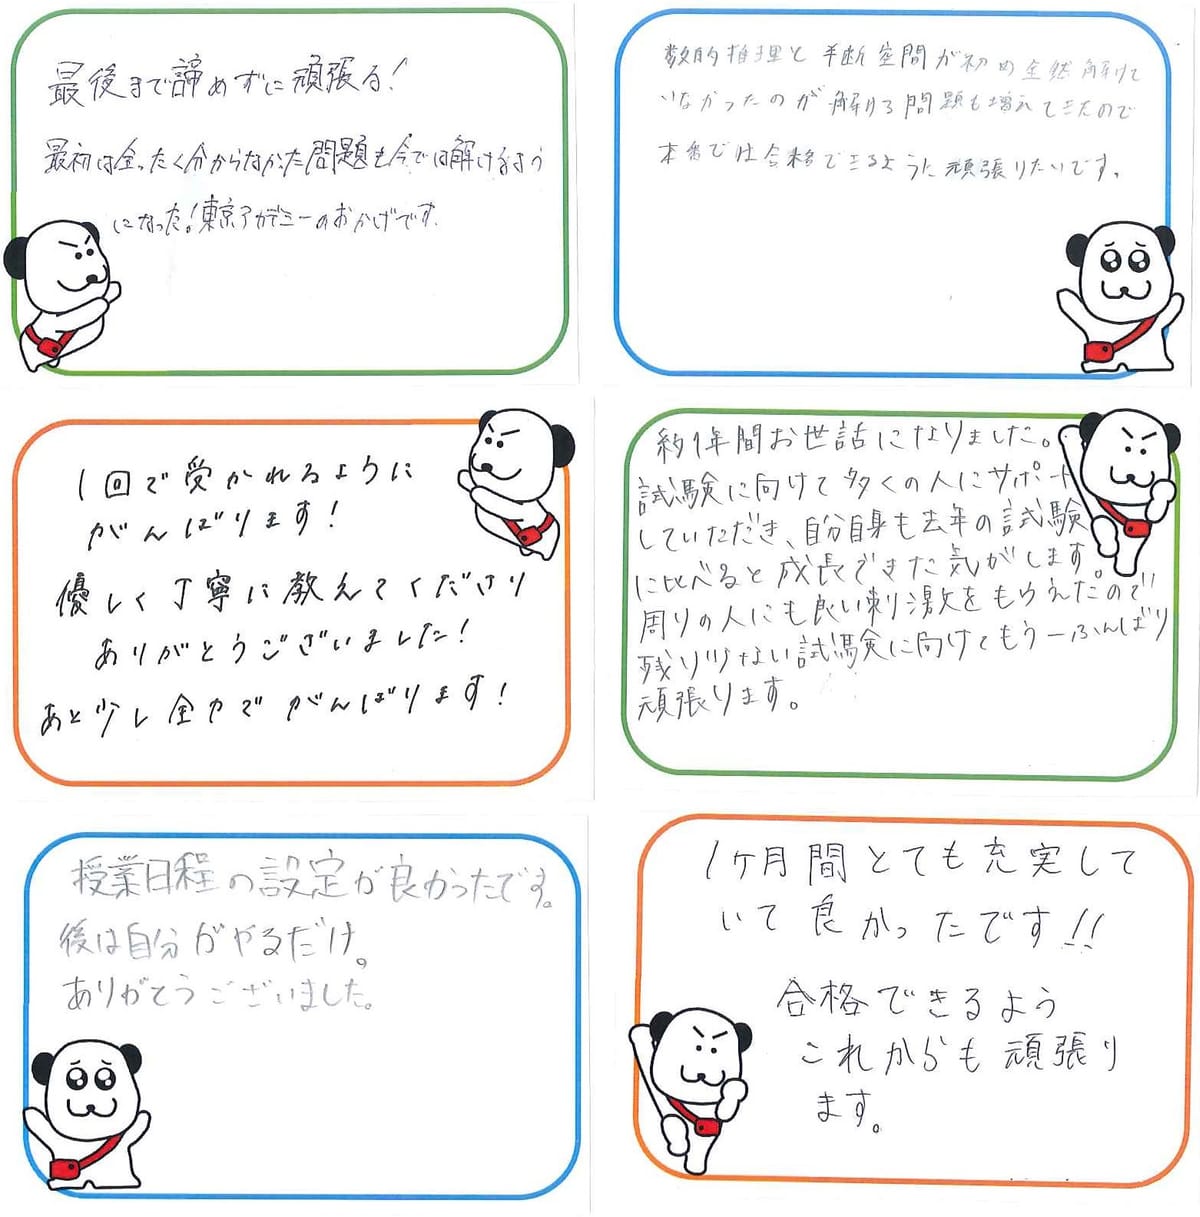 最後まで諦めずに頑張る!
最初は全ったく分からなかった問題も今では解けるよう
になった!東京アカデミーのおかげです.
数的推理と判断空間が初め全然解けて
いなかったのが解ける問題も増えてきたので
本番では合格できるように頑張りたいです。
1回で受かれるように
がんばります!
優しく丁寧に教えてくださり
ありがとうございました!
あと少し全力でがんばります!
約1年間お世話になりました。
試験に向けて多くの人にサポート
していただき、自分自身も去年の試験
に比べると成長できた気がします。
周りの人にも良い刺激をもらえたので
残り少ない試験に向けてもう一ふんばり
頑張ります。
授業日程の設定が良かったです。
後は自分がやるだけ。
ありがとうございました。
1ヶ月間とても充実して
いて良かったです!!
合格できるよう
これからも頑張り
ます。